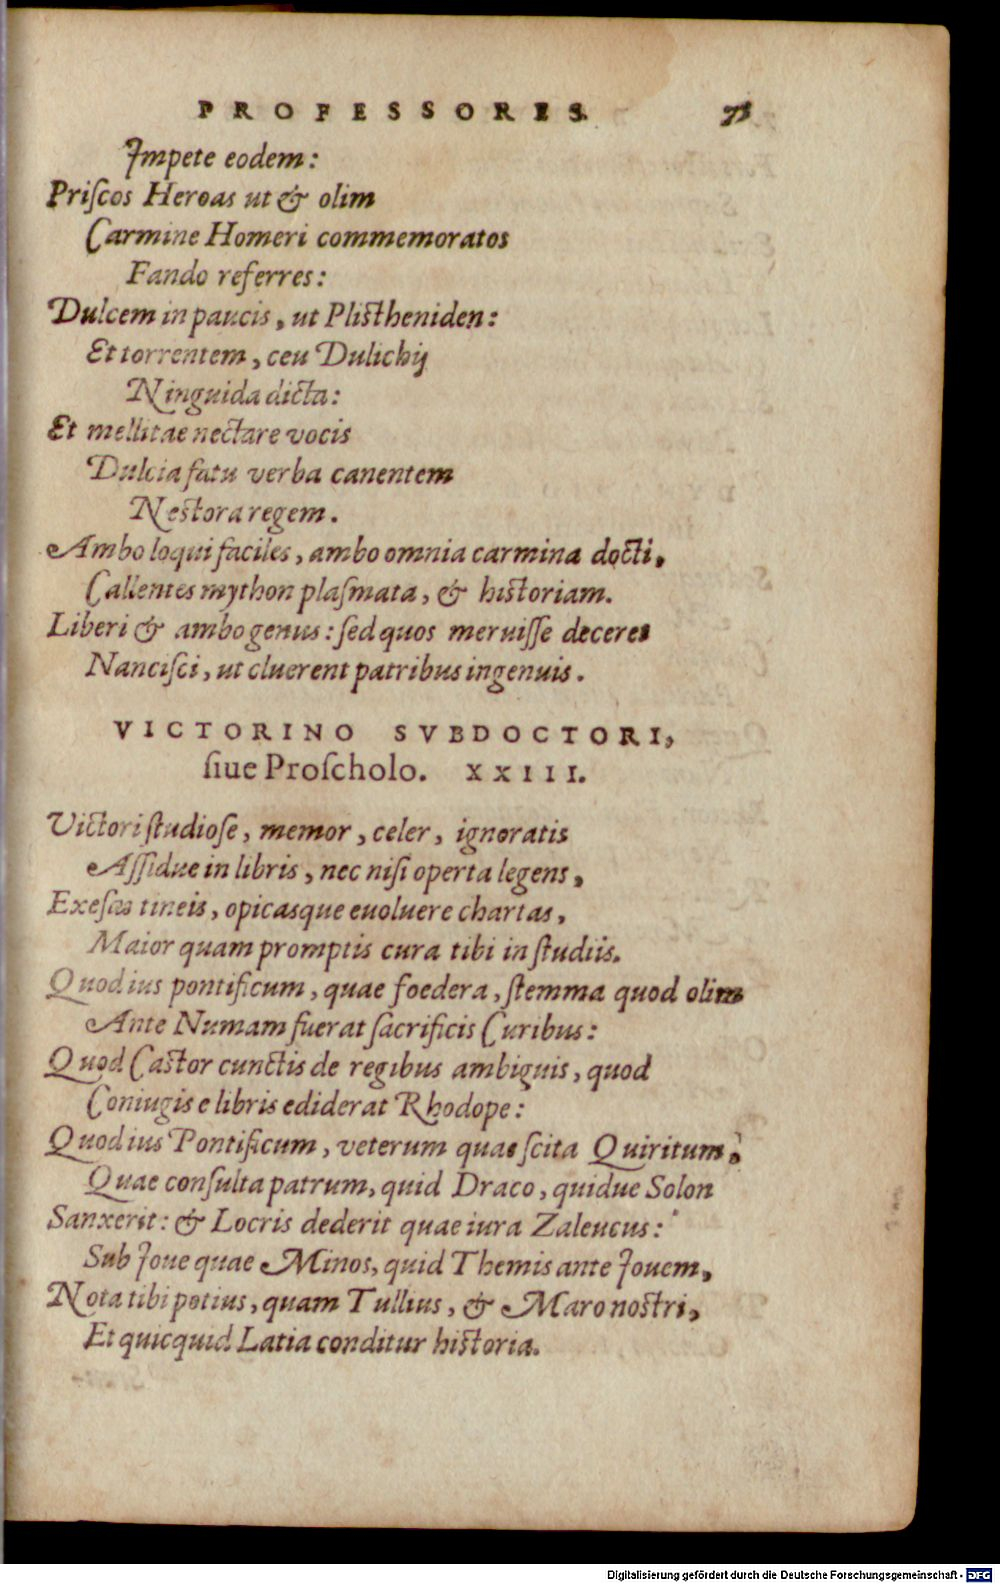 PROFESSORES. 75
Impete eodem:
Priſcos Heroas ut & olim
Carmine Homeri commemoratos
Fando referres:
Dulcem in paucis, ut Pliſtheniden:
Et torrentem, ceu Dulichij
Ninguida dicta:
Et mellitae nectare vocis
Dulcia fatu verba canentem
Neſtora regem.
Ambo loqui faciles, ambo omnia carmina docti,
Callentes mython plaſmata, & hiſtoriam.
Liberi & ambo genus: ſed quos meruiſſe deceret
Nanciſci, ut cluerent patribus ingenuis.
VICTORINO SVBDOCTORI,
ſiue Proſcholo. XXIII.
Victori ſtudioſe, memor, celer, ignoratis
Aſſidue in libris, nec niſi operta legens,
Exeſas tineis, opicasque euoluere chartas,
Maior quam promptis cura tibi in ſtudiis.
Quod ius pontificum, quae foedera, ſtemma quod olim
Ante Numam fuerat ſacrificis Curibus:
Quod Caſtor cunctis de regibus ambiguis, quod
Coniugis e libris ediderat Rhodope:
Quod ius Pontificum, veterum quae ſcita Quiritum,
Quae conſulta patrum, quid Draco, quidue Solon
Sanxerit: & Locris dederit quae iura Zaleucus:
Sub Ioue quae Minos, quid Themis ante Iouem,
Nota tibi potius, quam Tullius, & Maro noſtri,
Et quicquid Latia conditur hiſtoria.
Digitalisierung gefördert durch die Deutsche Forschungsgemeinschaft - DFG